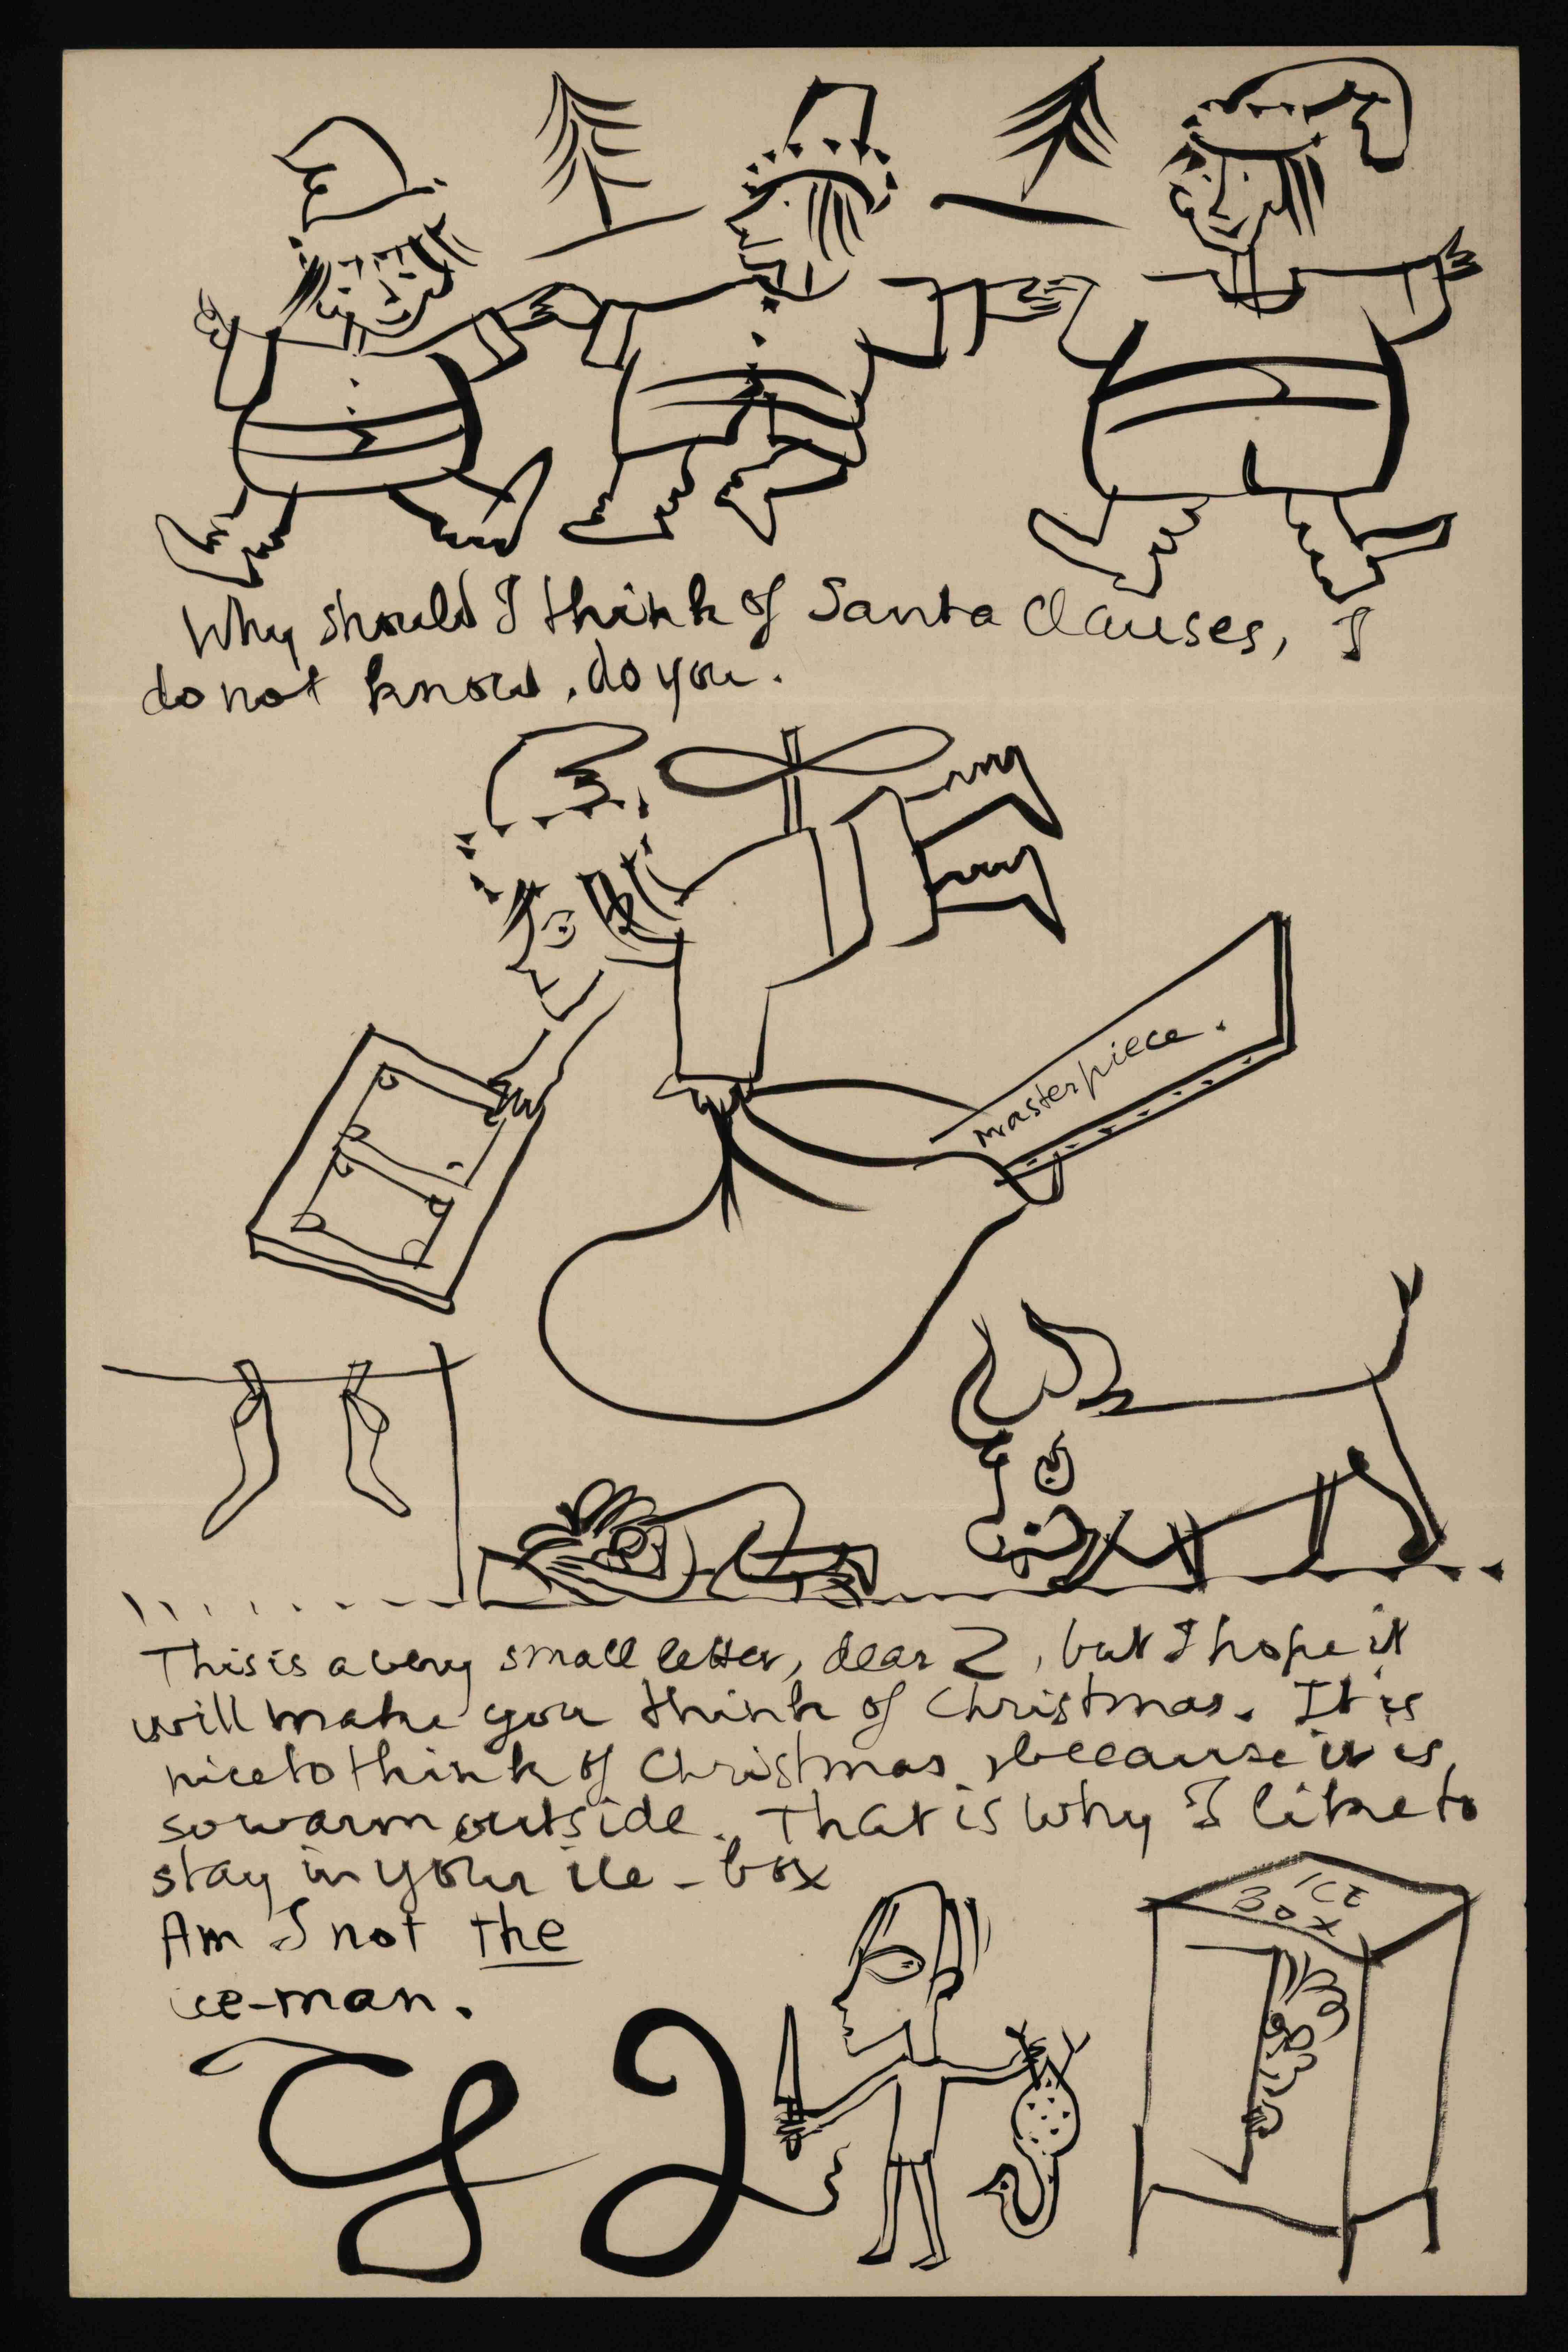 Why should I think of Santa Clauses, I
do not know, do you.
Masterpiece.
This is a very small letter, dear Z, but I hope it
will make you think of Christmas. It is
nice to think of Christmas, because it is
so warm outside. That is why I like to
stay in your ice-box
ICE
BOX
Am I not the
ice-man.